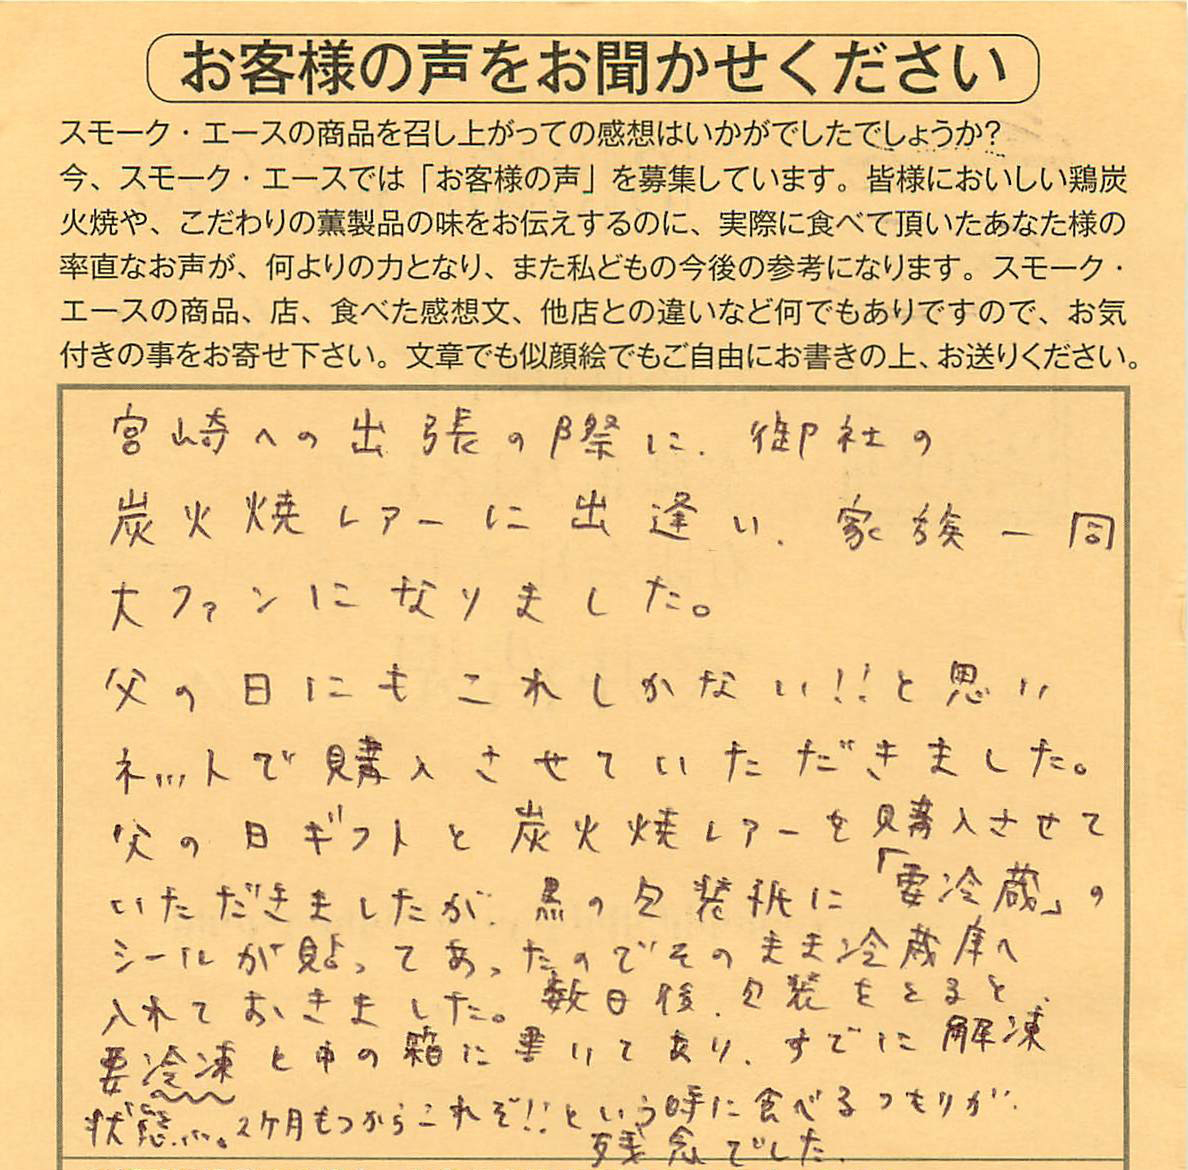 お客様の声をお聞かせください
スモーク・エースの商品を召し上がっての感想はいかがでしたでしょうか?
今、スモーク・エースでは「お客様の声」を募集しています。皆様においしい鶏炭
火焼や、こだわりの薫製品の味をお伝えするのに、実際に食べて頂いたあなた様の
率直なお声が、何よりの力となり、また私どもの今後の参考になります。スモーク・
エースの商品、店、食べた感想文、他店との違いなど何でもありですので、お気
付きの事をお寄せ下さい。文章でも似顔絵でもご自由にお書きの上、お送りください。
宮崎への出張の際に、御社の
炭火焼レアーに出逢い、家族一同
大ファンになりました。
父の日にもこれしかない!!と思い
ネットで購入させていただきました。
父の日ギフトと炭火焼レアーを購入させて
いただきましたが、黒の包装紙に「要冷蔵」の
シールが貼ってあったのでそのまま冷蔵庫へ
入れておきました。数日後、包装をとると、
要冷凍と中の箱に書いてあり、すでに解凍
状態…。2ケ月もつからこれぞ!!という時に食べるつもりが、
残念でした。